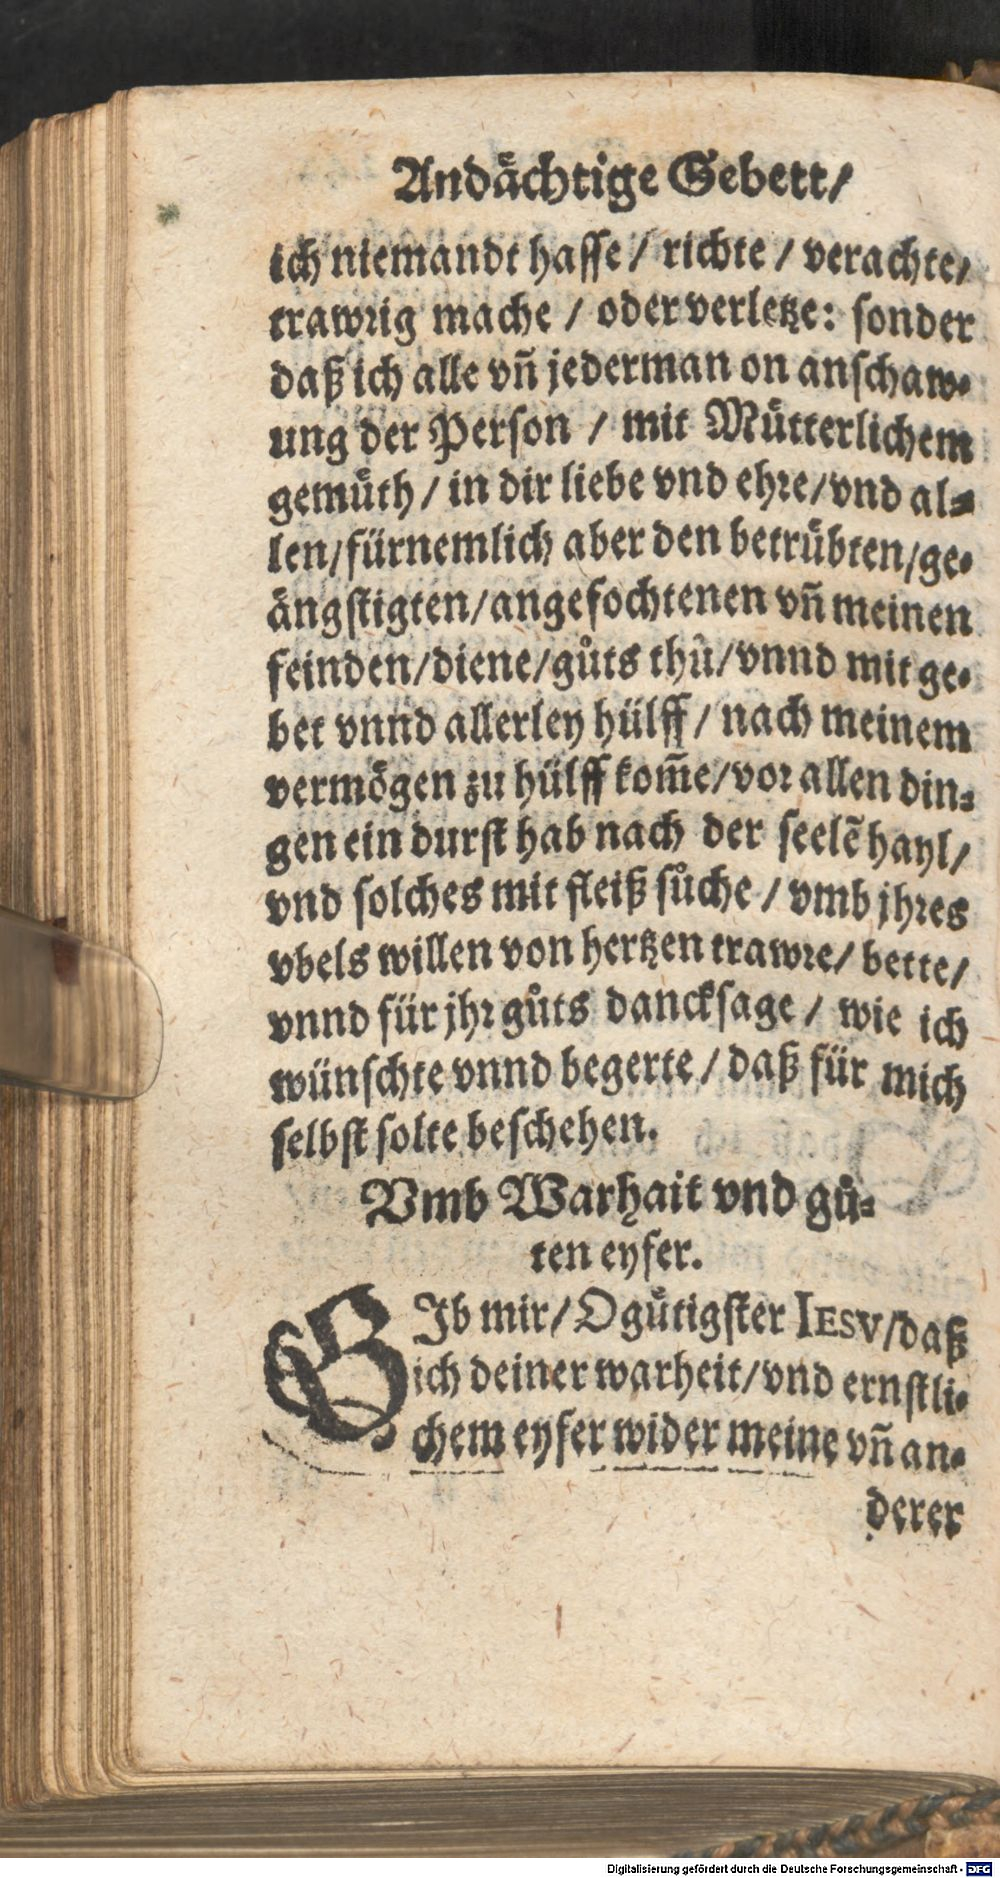 Andächtige Gebett/
ich niemandt hasse/ richte / verachte/
trawrig mache / oder verletze: sonder
daß ich alle vñ jederman on anschaw-
ung der Person / mit Mütterlichem
gemüth/ in dir liebe vnd ehre/vnd al-
len/fürnemlich aber den betrübten/ge-
ängstigten/angefochtenen vñ meinen
feinden/diene/gůts thů/vnnd mit ge-
bet vnnd allerley hülff/ nach meinem
vermögen zu hülff kom̃e/vor allen din-
gen ein durst hab nach der seelẽ hayl/
vnd solches mit fleiß sůche / vmb jhres
vbels willen von hertzen trawre/ bette/
vnnd für jhr gůts dancksage / wie ich
wünschte vnnd begerte / daß für mich
selbst solte beschehen.
Vmb Warhait vnd gů-
ten eyfer.
GIb mir/ O gütigster IESV/daß
ich deiner warheit/vnd ernstli-
chem eyfer wider meine vñ an-
derer
Digitalisierung gefördert durch die Deutsche Forschungsgemeinschaft - DFG